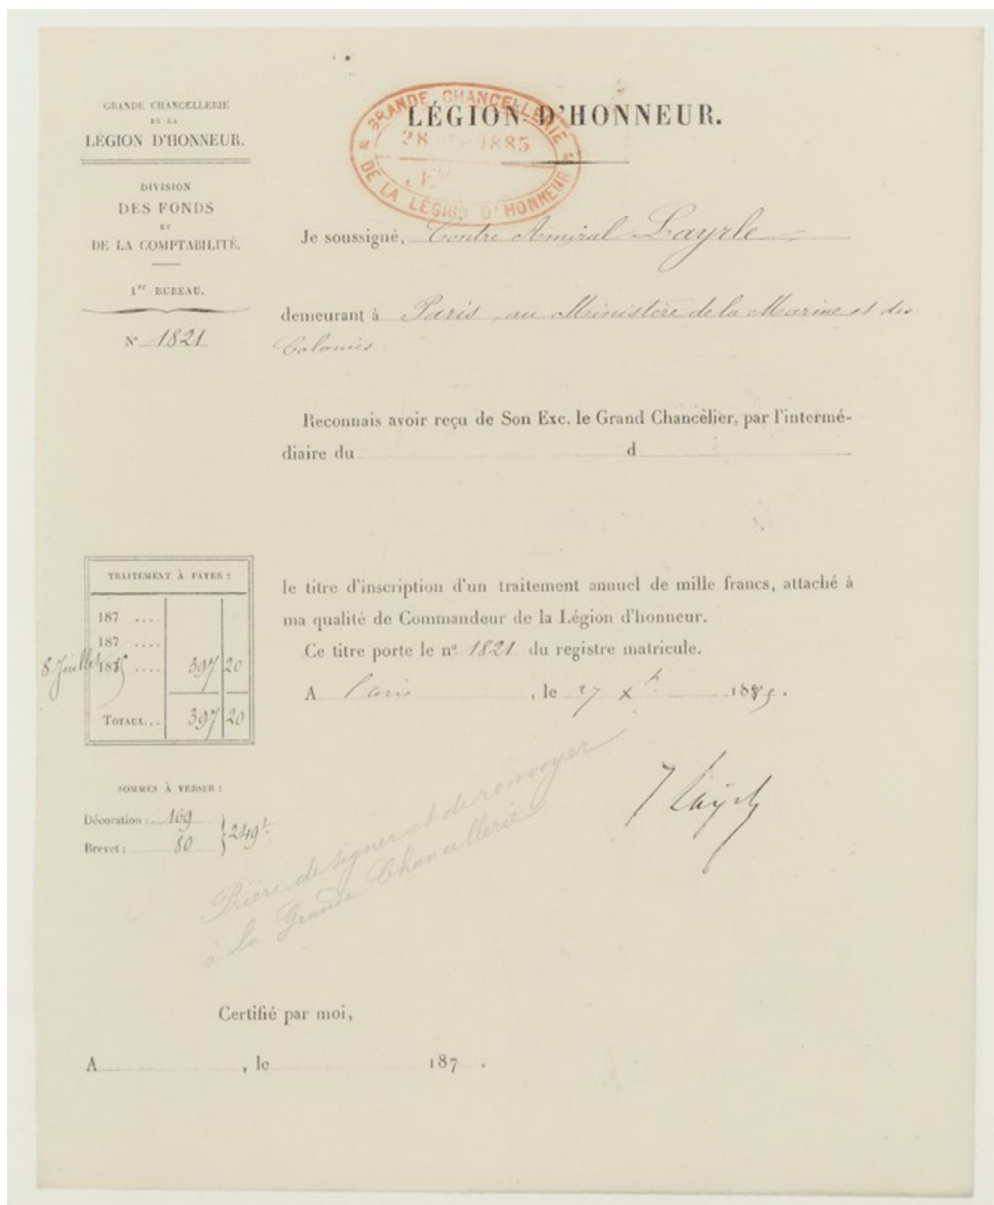 GRANDE CHANCELLERIE
DE LA
LÉGION D'HONNEUR.
DIVISION
DES FONDS
ET
DE LA COMPTABILITÉ.
1er BUREAU.
N° 1821
GRANDE CHANCELLERIE
28 1885
DE LA LÉGION D'HONNEUR
LÉGION D'HONNEUR.
Je soussigné, Contre Amiral Layrle
demeurant à Paris, au Ministère de la Marine et des
Colonies
Reconnais avoir reçu de Son Exc. le Grand Chancelier, par l'intermé-
diaire du d
le titre d'inscription d'un traitement annuel de mille francs, attaché à
ma qualité de Commandeur de la Légion d'honneur.
Ce titre porte le n° 1821 du registre matricule.
A Paris, le 27 Xbre 1885.
TRAITEMENT À PAYER :
187 ....
187 ....
8 Juillet 1885 .... 397 20
TOTAUX... 397 20
SOMMES À VERSER :
Décoration : 169
Brevet : 80
249 f.
Prière de signer et de renvoyer
à la Grande Chancellerie
Layrle
Certifié par moi,
A , le 187 .